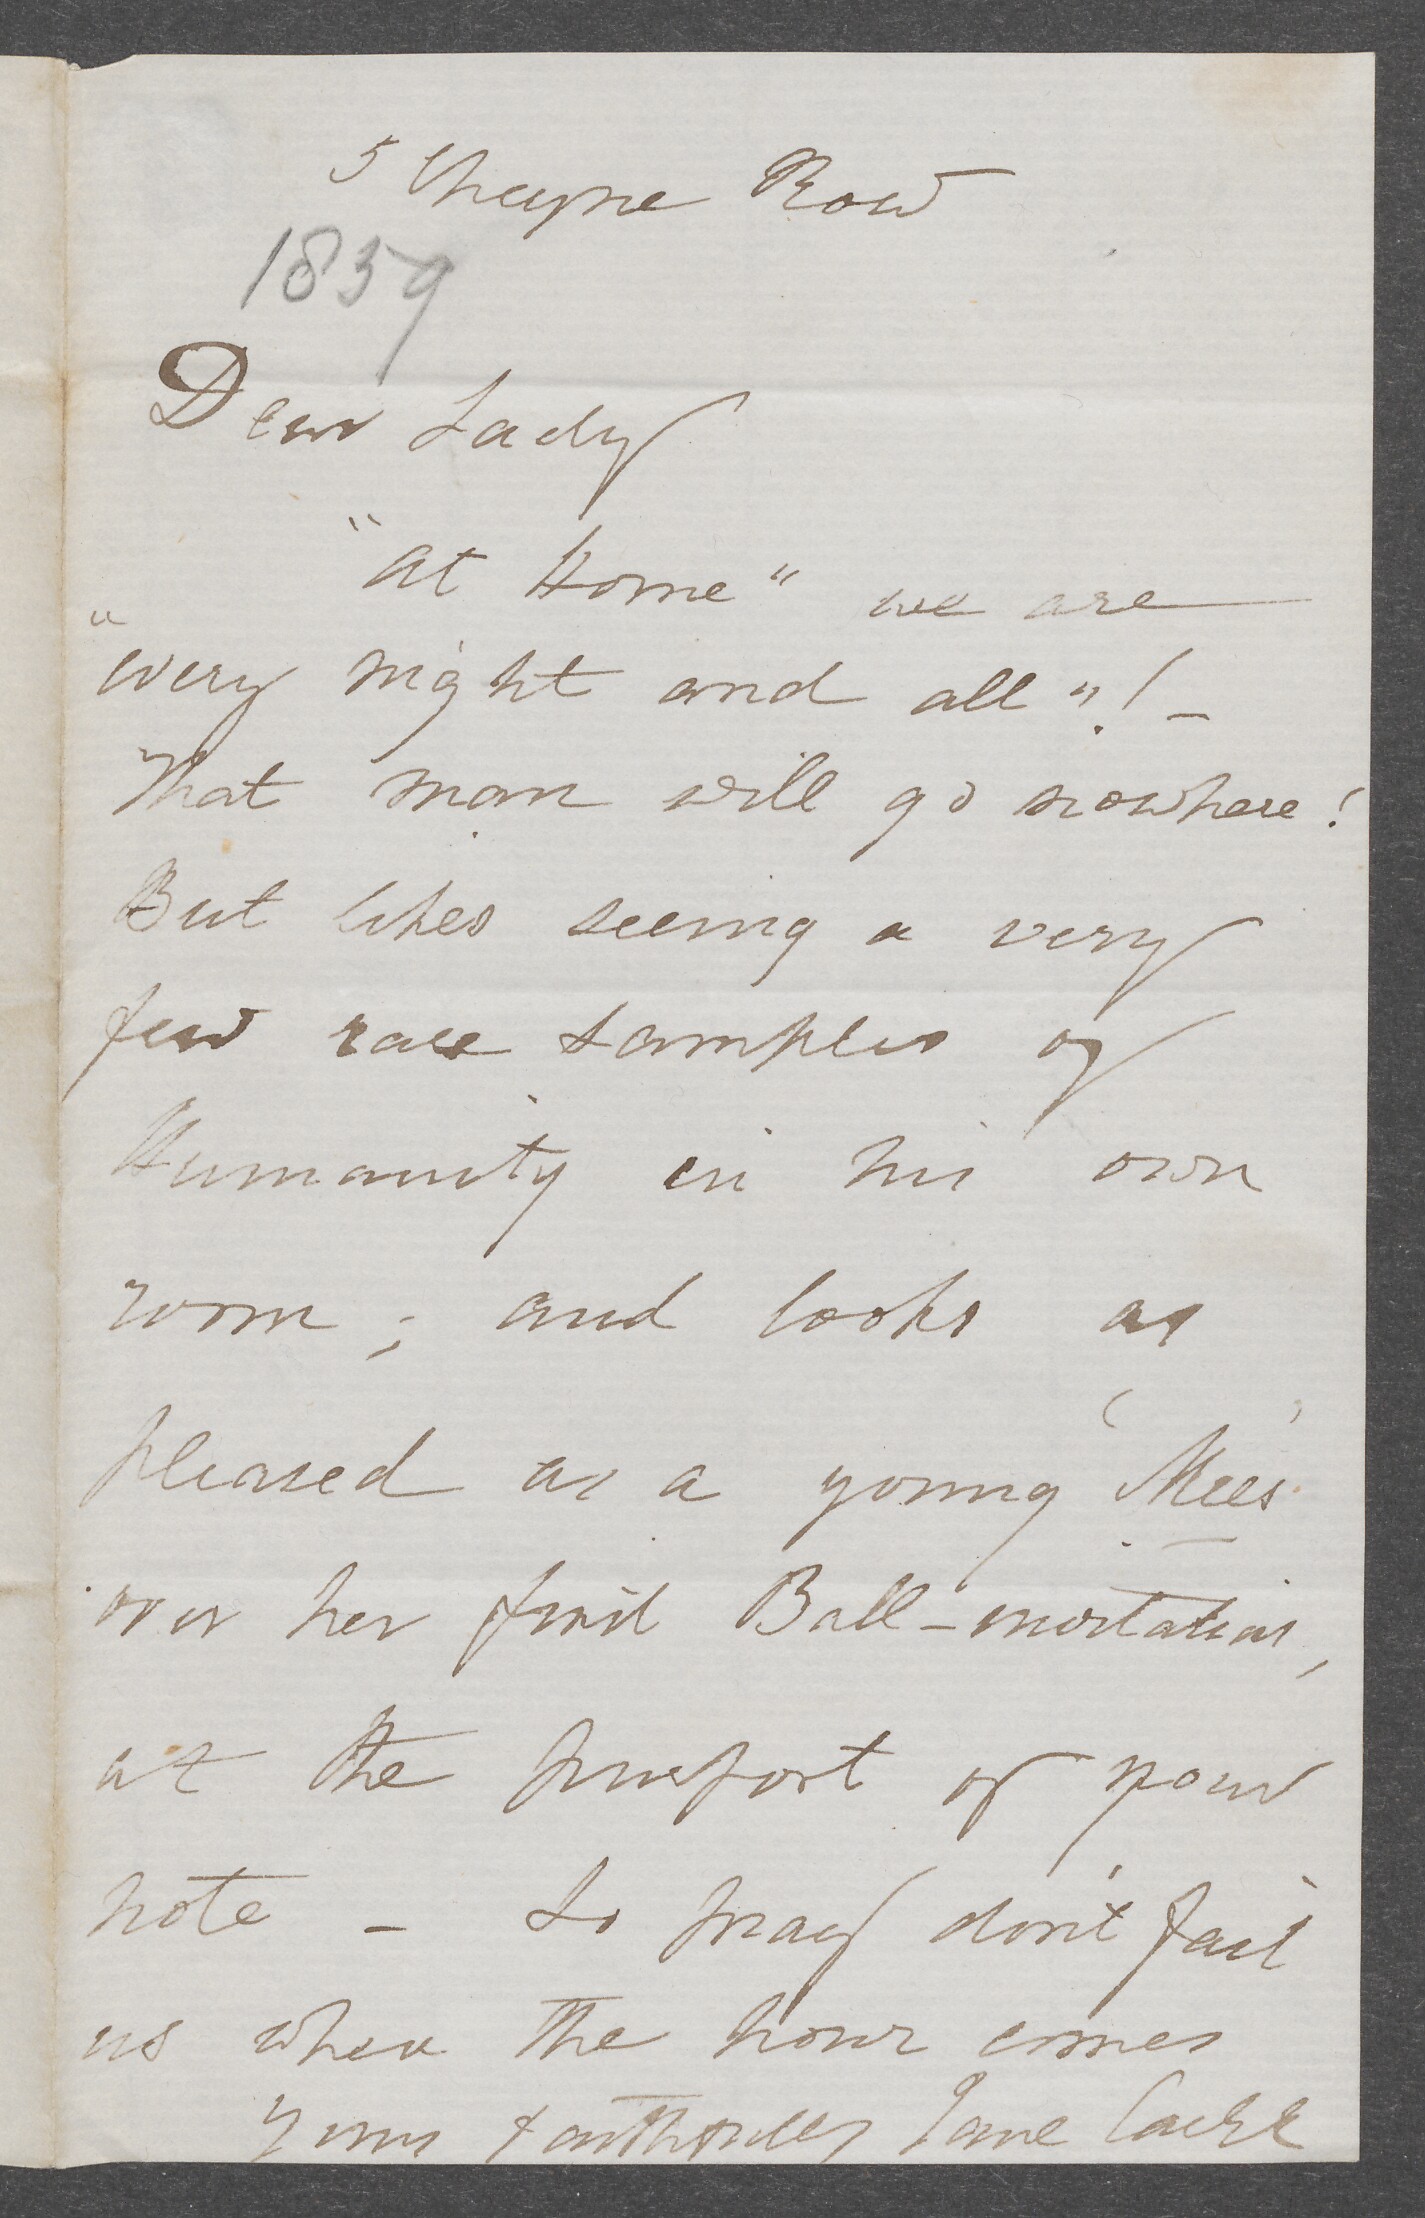 5 Cheyne Row
1859
Dear Lady
"at Home" we are
"every night and all"! -
That man will go nowhere!
But likes seeing a very
few rare samples of
Humanity in his own
room; and looks as
pleased as a young 'Mees'
over her first Ball-invitation,
at the purport of your
note - So pray don't fail
us when the hour comes
Yours faithfully Jane